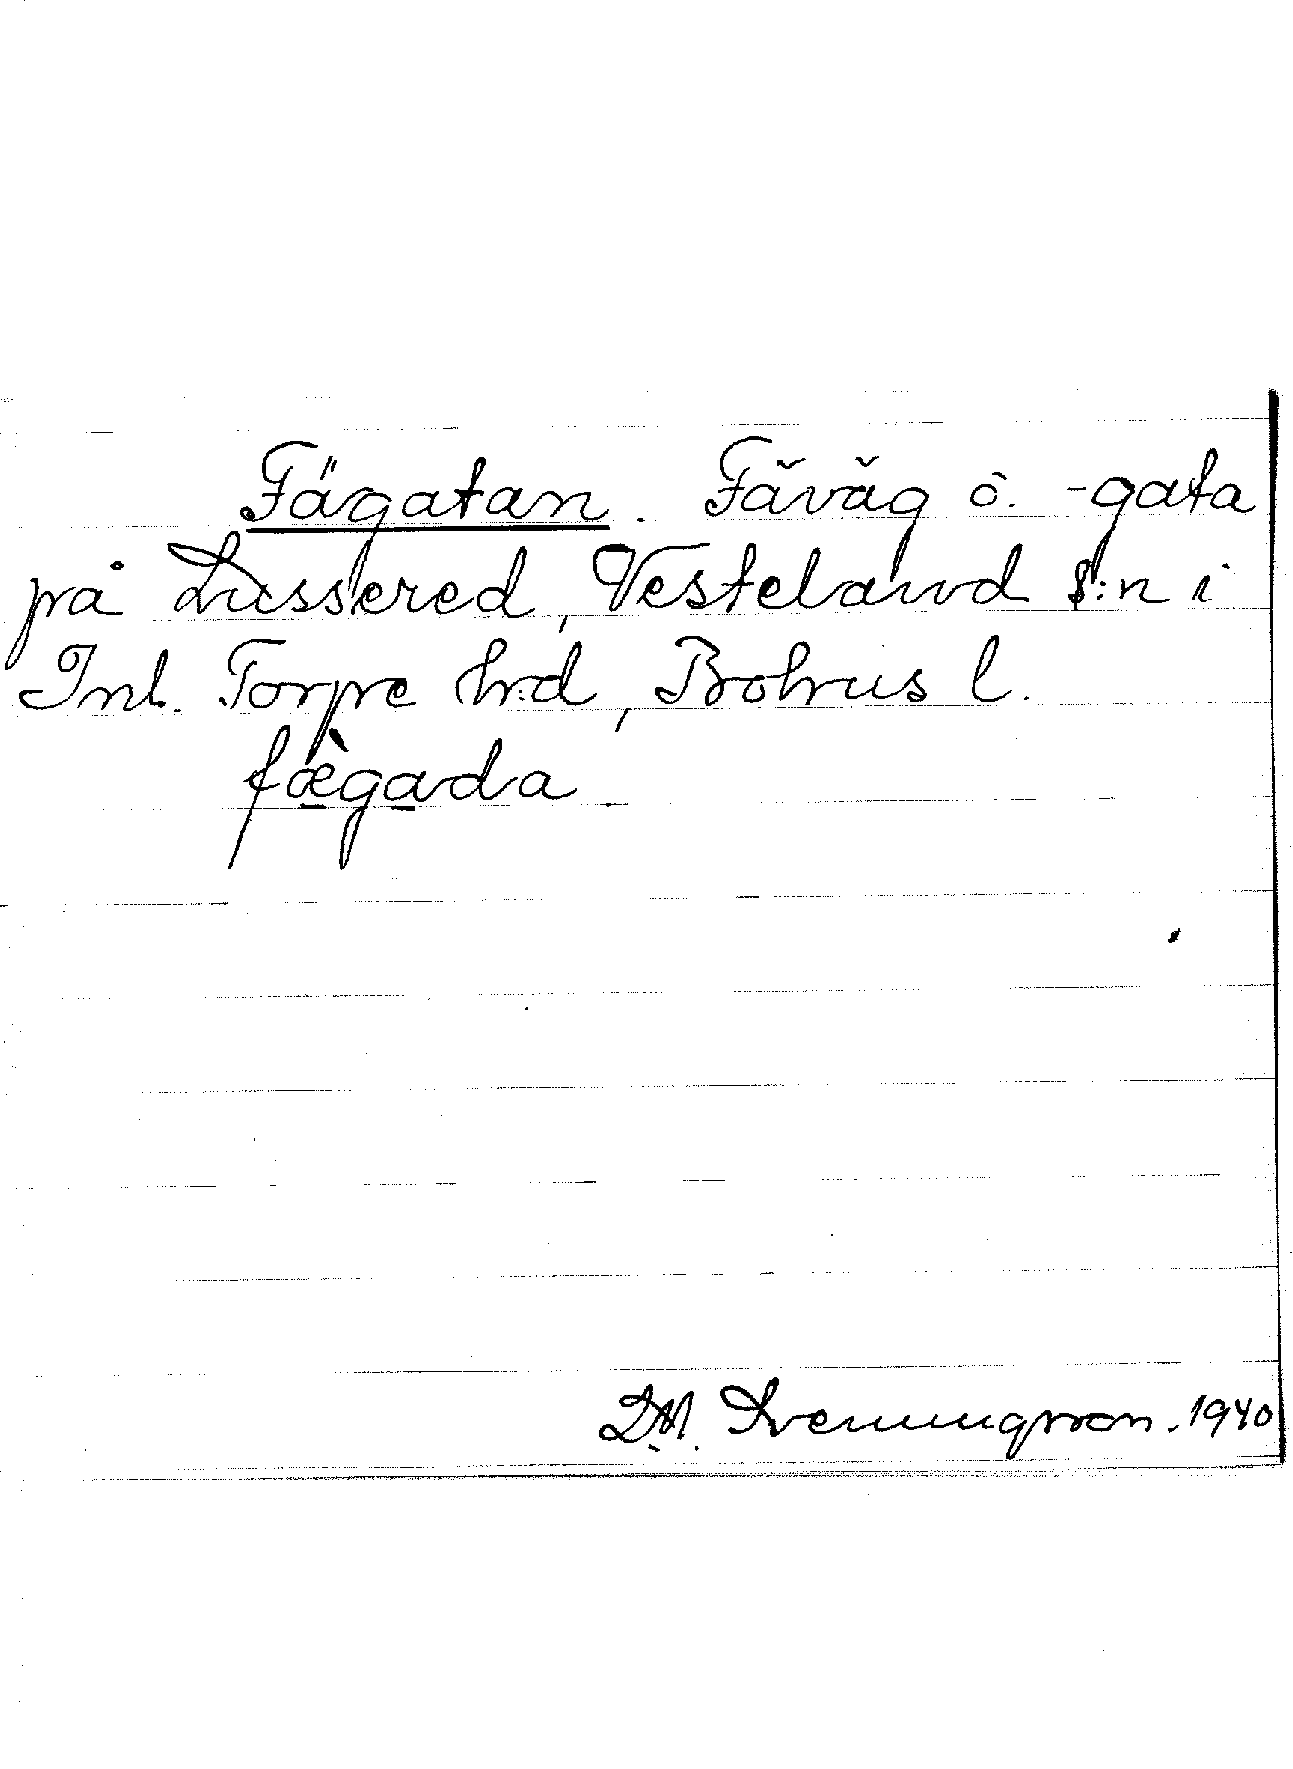 Fägatan. Fäväg o. -gata
på Lussered, Vesteland s:n i
Inl. Torpe hrd, Bohus l.
fæ̀gada
D.M. Svenningsson. 1940